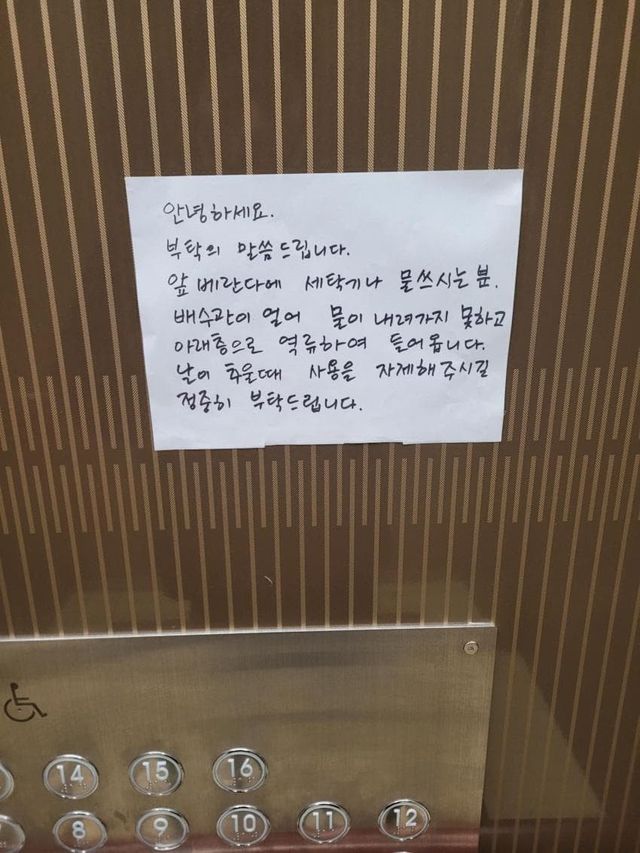 안녕하세요.
부탁의 말씀드립니다.
앞 베란다에 세탁기나 물쓰시는 분.
배수관이 얼어 물이 내려가지 못하고
아래층으로 역류하여 들어옵니다.
날이 추울때 사용을 자제해주시길
정중히 부탁드립니다.
14 15 16
8 9 10 11 12